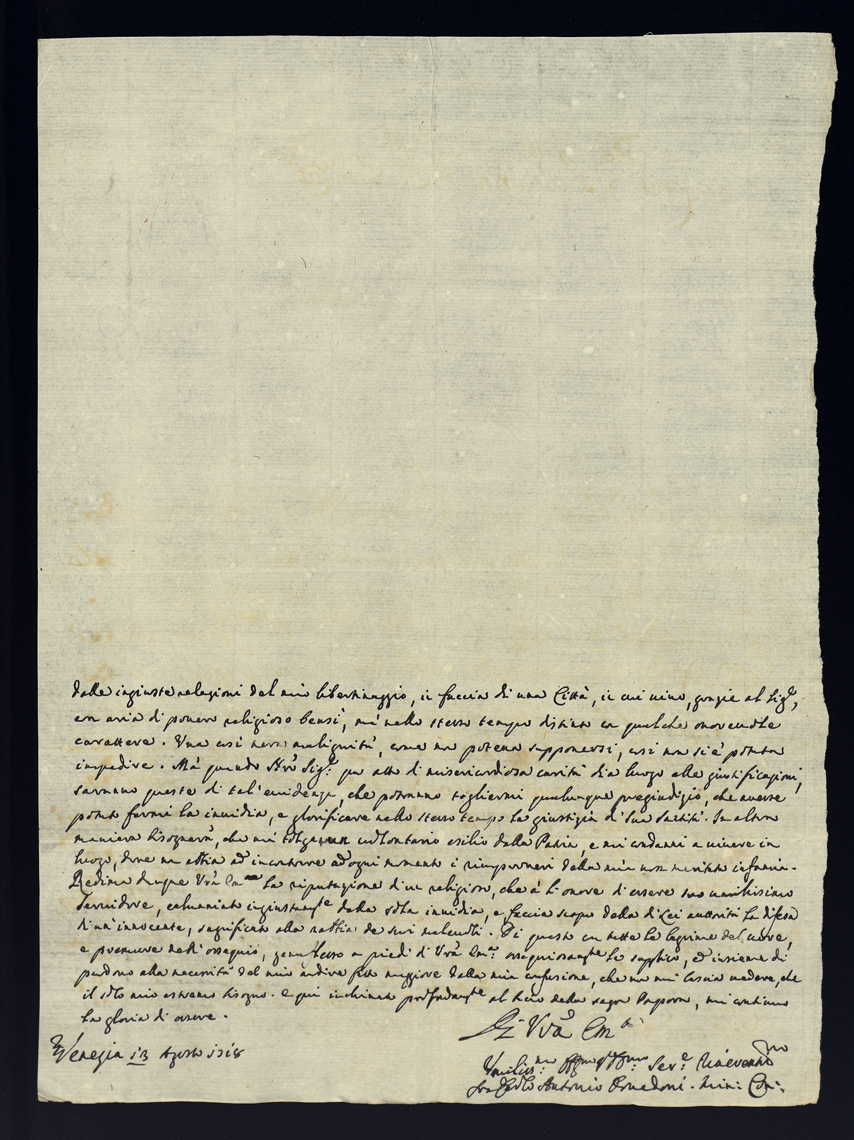 dalle ingiuste relazioni del mio libertinaggio, in faccia di una Città, in cui vivo, grazie al Sig.re,
con aria di povero religioso bensì, mà nello stesso tempo distinto con qualche onorevole
carattere. Una così nera malignità, come non poteva supponersi, così non si è potuta
impedire. Mà quando Sig.re per atto di misericordiosa carità dia luogo alle giustificazioni,
saranno queste di tal'evidenza, che potranno togliermi qualunque pregiudizio, che avesse
potuto farmi la invidia, e glorificare nello stesso tempo la giustizia di Sua Santità. In altra
maniera bisognerà, che mi tolga un volontario esilio dalla Patria, e mi condanni a vivere in
luogo, dove non abbia ad incontrare ad ogni momento i rimproveri della mia non meritata infamia.
Redima dunque Vrã Em.za la riputazione di un religioso, che à l'onore d'essere suo umilissimo
Servidore, calunniato ingiustam.te dalla sola invidia, e faccia scopo della di Lei autorità la difesa
di un'innocente, sagrificato alla rabbia de suoi malevoli. Di questo con tutte le lagrime del cuore,
e premure dell'ossequio, genuflesso a piedi di Vrã Em.za ossequiosam.te la supplico, ed insieme di
perdono alla necessità del mio ardire fatto maggiore della mia confusione, che non mi lascia vedere, che
il solo mio estremo bisogno. e qui inchinato profondam.te al bacio della sagra Porpora, mi continuo
la gloria di essere.
Di Vrã Em.za
Venezia 13 Agosto 1718
Umiliss.mo Ser.e Riverentis.mo
fra Antonio Min: Con: